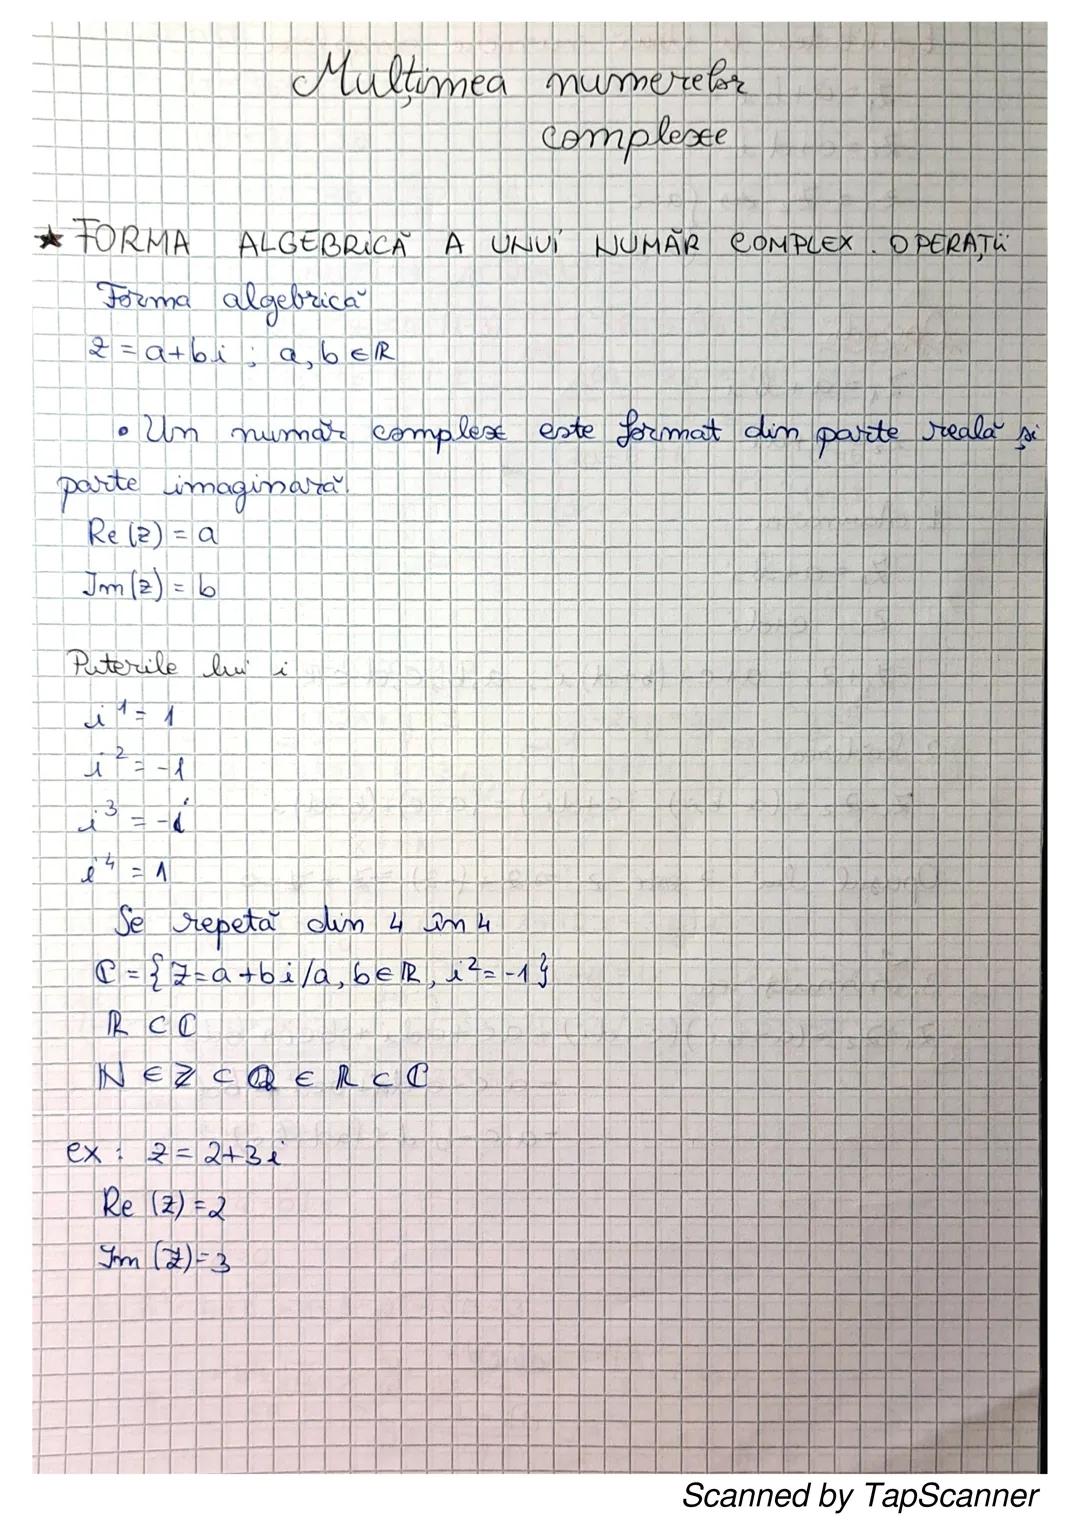 Mulțimea numerelor
complexe
★ FORMA ALGEBRICĂ A UNUI NUMĂR COMPLEX. OPERAȚII
Forma algebrică
z = a+bi ; a, b ∈ ℝ
• Un număr complex este format din parte reală și
parte imaginară.
Re (z) = a
Im (z) = b
Puterile lui i
i¹ = 1
i² = -1
i³ = -i
i⁴ = 1
Se repetă din 4 în 4
ℂ = {z=a+bi/a, b∈ℝ, i²=-1}
ℝ ⊂ ℂ
ℕ ∈ ℤ ⊂ ℚ ∈ ℝ ⊂ ℂ
ex : z = 2+3i
Re (z) = 2
Im (z) = 3
Scanned by TapScanner